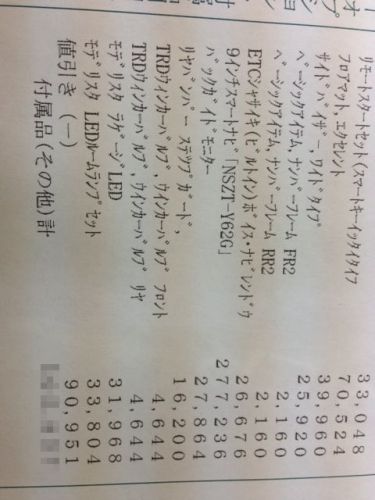 33,048
リモートスタートセット(スマートキーイッタイタイプ 70,524
フロアマット,エクセレント 39,960
サイドバイザー,ワイドタイプ 25,920
ベーシックアイテム,ナンバーフレーム FR2 2,160
ベーシックアイテム,ナンバーフレーム RR2 2,160
ETCシャザイキ(ビルトイン)ボイス・ナビレンドウ 26,676
9インチスマートナビ「NSZT-Y62G」 277,236
バックガイドモニター 27,864
リヤバンパーステップガード, 16,200
TRDウィンカーバルブ,ウインカーバルブ フロント 4,644
TRDウィンカーバルブ,ウインカーバルブ リヤ 4,644
モデリスタ ラゲージLED 31,968
モデリスタ LEDルームランプセット 33,804
値引き (−) 90,951
付属品(その他)計